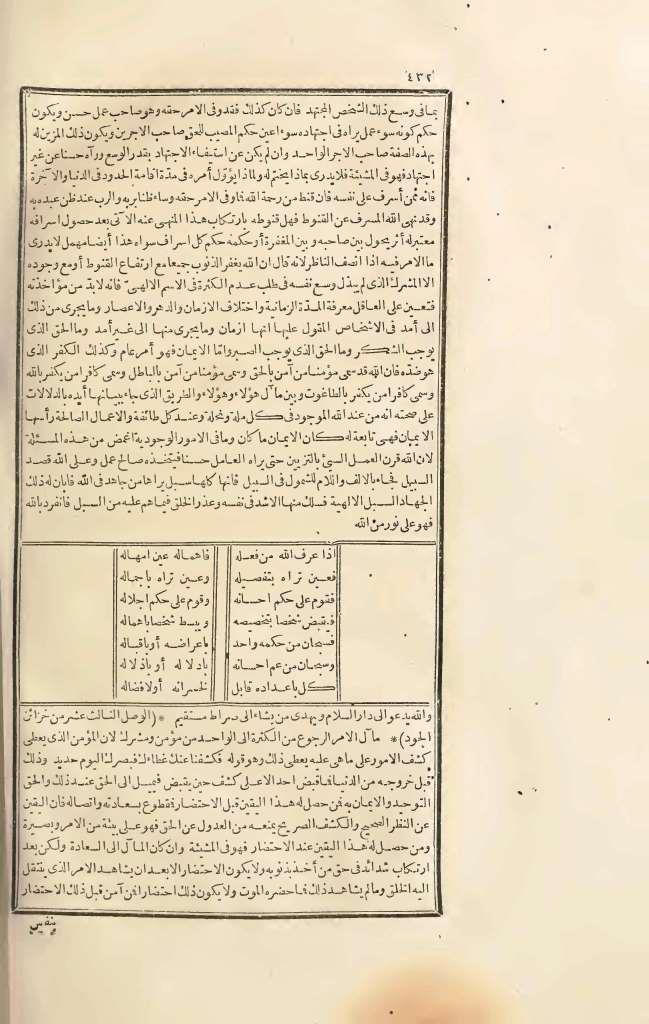 ٤٣٢
بما فى وسع ذلك الشخص المجتهد فان كان كذلك فقد وفى الامر حقه وهو صاحب عمل حسن ويكون
حكم كونه سوء عمل يراه فى اجتهاده سوءا عين حكم المصيب للحق صاحب الاجرين ويكون ذلك المزين له
بهذه الصفة صاحب الاجر الواحد وان لم يكن عن استيفاء الاجتهاد بقدر الوسع ورآه حسنا عن غير
اجتهاد فهو فى المشيئة فلا يدرى بماذا يختم له ولماذا يؤول أمره فى مدة اقامة الحدود فى الدنيا والآخرة
فانه ممن أسرف على نفسه فان قنط من رحمة الله فما وفى الامر حقه وساء ظنا بربه والرب عند ظن عبده به
وقد نهى الله المسرف عن القنوط فهل قنوطه بارتكاب هذا المنهى عنه الآتى بعد حصول اسرافه
معتبر له أثر يحول بين صاحبه وبين المغفرة أو حكمه حكم كل اسراف سواه هذا أيضا مهمل لا يدرى
ما الامر فيه اذا انصف الناظر لانه قال ان الله يغفر الذنوب جميعا مع ارتفاع القنوط أو مع وجوده
الا المشرك الذى لم يبذل وسع نفسه فى طلب عدم الكثرة فى الاسم الالهىّ فانه لابد من مؤاخذته
فتعين على العاقل معرفة المدة الزمانية واختلاف الازمان والدهر والاعصار وما يجرى من ذلك
الى أمد فى الاشخاص المقول عليها انها ازمان وما يجرى منها الى غير أمد وما الحق الذى
يوجب الشكر وما الحق الذى يوجب الصبر وامّا الايمان فهو أمر عام وكذلك الكفر الذى
هو ضدّه فان الله قد سمى مؤمنا من آمن بالحق وسمى مؤمنا من آمن بالباطل وسمى كافرا من يكفر بالله
وسمى كافرا من يكفر بالطاغوت وبين مآل هؤلاء وهؤلاء والطريق الذى جاء ببيانها أيده بالدلالات
على صحته انه من عند الله الموجود فى كل ملة ونحلة وعند كل طائفة والاعمال الصالحة رأسها
الايمان فهى تابعة له كان الايمان ما كان وما فى الامور الوجودية اغمض من هذه المسئلة
لان الله قرن العمل السيئ بالتزيين حتى يراه العامل حسنا فيتخذه صالح عمل وعلى الله قصد
السبيل فجاء بالالف واللام للشمول فى السبيل فانها كلها سبل يراها من جاهد فى الله فابان له ذلك
الجهاد السبل الالهية فسلك منها الاسد فى نفسه وعذر الخلق فيما هم عليه من السبل فانفرد بالله
فهو على نور من الله
اذا عرف الله من فعله فاهماله عين امهاله
فعين تراه بتفصيله وعين تراه باجماله
فقوم على حكم احسانه وقوم على حكم اجلاله
فيقبض شخصا بتخصيصه ويبسط شخصا باهماله
فسبحان من حكمه واحد باعراضه أو باقباله
وسبحان من عم احسانه بادلاله أو باذلاله
كل باعداده قابل لخسرانه أو لافضاله
والله يدعو الى دار السلام ويهدى من يشاء الى صراط مستقيم * (الوصل الثالث عشر من خزائن
الجود) * مآل الامر الرجوع من الكثرة الى الواحد من مؤمن ومشرك لان المؤمن الذى يعطى
كشف الامور على ما هى عليه يعطى ذلك وهو قوله فكشفنا عنك غطاءك فبصرك اليوم حديد وذلك
قبل خروجه من الدنيا فما قبض احد الا على كشف حين يقبض فيميل الى الحق عند ذلك والحق
التوحيد والايمان به فمن حصل له هذا اليقين قبل الاحتضار فمقطوع بسعادته واتصاله فان اليقين
عن النظر الصحيح والكشف الصريح يمنعه من العدول عن الحق فهو على بينة من الامر وبصيرة
ومن حصل له هذا اليقين عند الاحتضار فهو فى المشيئة وان كان المآل الى السعادة ولكن بعد
ارتكاب شدائد فى حق من أخذ بذنوبه ولا يكون الاحتضار الا بعد ان يشاهد الامر الذى ينتقل
اليه الخلق وما لم يشاهد ذلك فما حضره الموت ولا يكون ذلك احتضارا فمن آمن قبل ذلك الاحتضار
بنفس